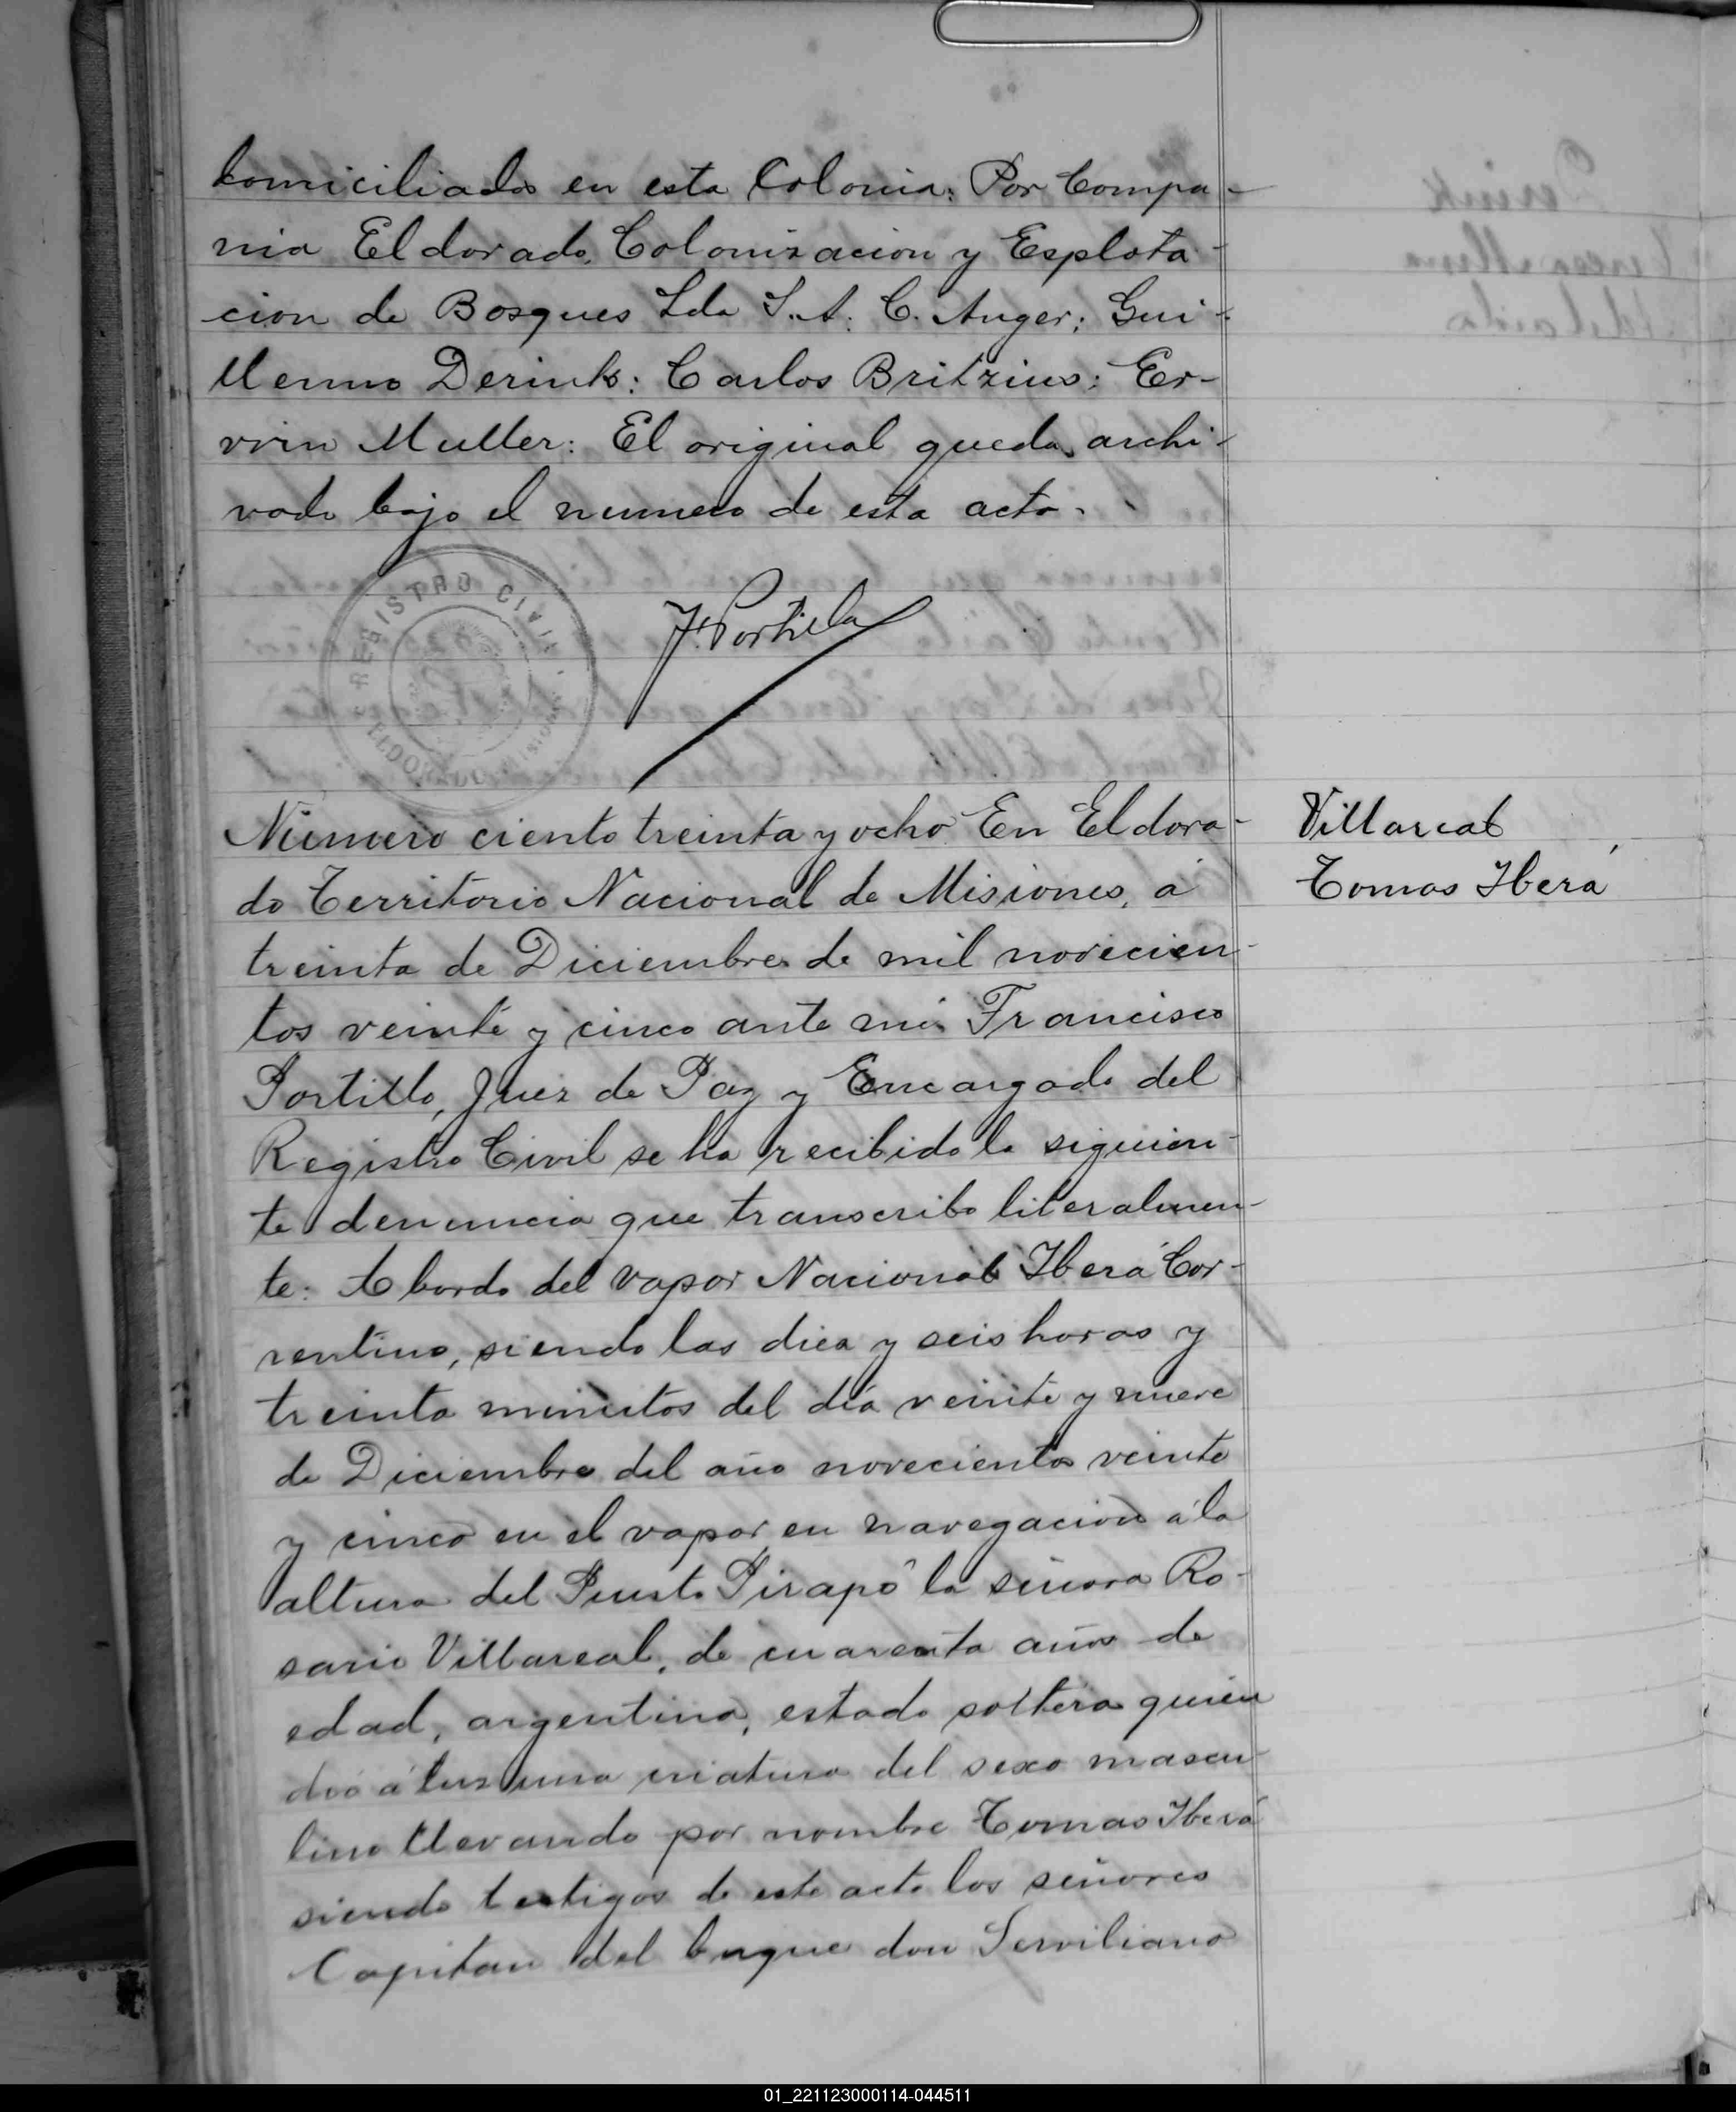 domiciliados en esta Colonia: Por Compa-
nia Eldorado, Colonizacion y Esplota-
cion de Bosques Lda S. A. C. Auger; Gui-
llermo Derink: Carlos Britzius: Er-
win Muller: El original queda archi-
vado bajo el numero de esta acta.
REGISTRO CIVIL
ELDORADO MISIONES
F. Portillo
Número ciento treinta y ocho En Eldora-
do Territorio Nacional de Misiones, á
treinta de Diciembre de mil novecien-
tos veinte y cinco ante mi Francisco
Portillo, Juez de Paz y Encargado del
Registro Civil se ha recibido la siguien-
te denuncia que transcribo literalmen-
te: A bordo del vapor Nacional Iberá Cor-
rentino, siendo las diez y seis horas y
treinta minutos del día veinte y nueve
de Diciembre del año novecientos veinte
y cinco en el vapor en navegación á la
altura del Puerto Pirapó la señora Ro-
sario Villareal, de cuarenta años de
edad, argentina, estado soltera quien
dió á luz una criatura del sexo mascu-
lino llevando por nombre Tomas Iberá
siendo testigos de este acto los señores
Capitan del buque don Serviliano
Villareal
Tomas Iberá
01_221123000114-044511